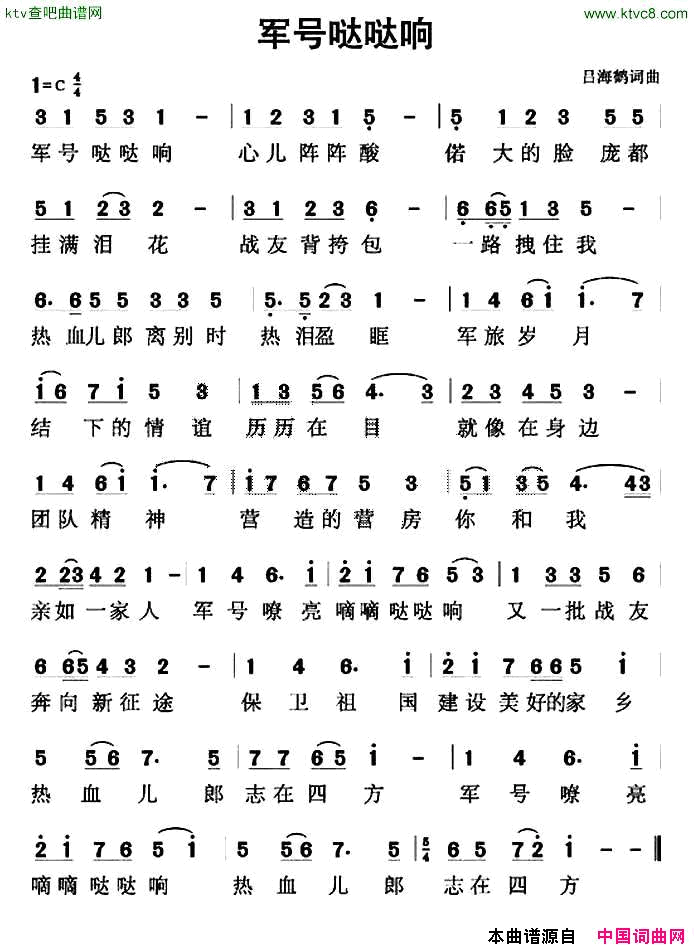 ktv查吧曲谱网
www.ktvc8.com
军号哒哒响
1=C 4/4
吕海鹤词曲
3 1 5 3 1 - | 1 2 3 1 5 - | 5 1 2 3 5 5
军号哒哒响 心儿阵阵酸 偌大的脸庞都
5 1 2 3 2 - | 3 1 2 3 6 - | 6 6 5 1 3 5 -
挂满泪花 战友背挎包 一路拽住我
6. 6 5 5 3 3 2 | 5. 5 2 3 1 - | 1 4 6 1 1. 7
热血儿郎离别时热泪盈眶 军旅岁月
1 6 7 1 5 3 | 1 3 5 6 4. 3 | 2 3 4 5 3 -
结下的情谊 历历在目 就像在身边
1 4 6 1 1. 7 | 1 7 6 7 5 3 | 5 1 3 5 4. 4 3
团队精神 营造的营房你和我
2 2 3 4 2 1 - | 1 4 6. 1 | 2 1 7 6 5 3 | 1 2 3 5 5
亲如一家人 军号嘹亮嘀嘀哒哒响 又一批战友
6 6 5 4 3 2 - | 2 4 6. 1 | 2 1 7 6 6 5 1
奔向新征途 保卫祖国建设美好的家乡
5 5 6 7. 5 | 7 7 6 5 1 - | 1 4 6. 1
热血儿郎志在四方 军号嘹亮
2 1 7 6 5 1 | 5 5 6 7. 5 | 5/4 6 5 7 2 1 - ‖
嘀嘀哒哒响 热血儿郎 志在四方
本曲谱源自 中国词曲网